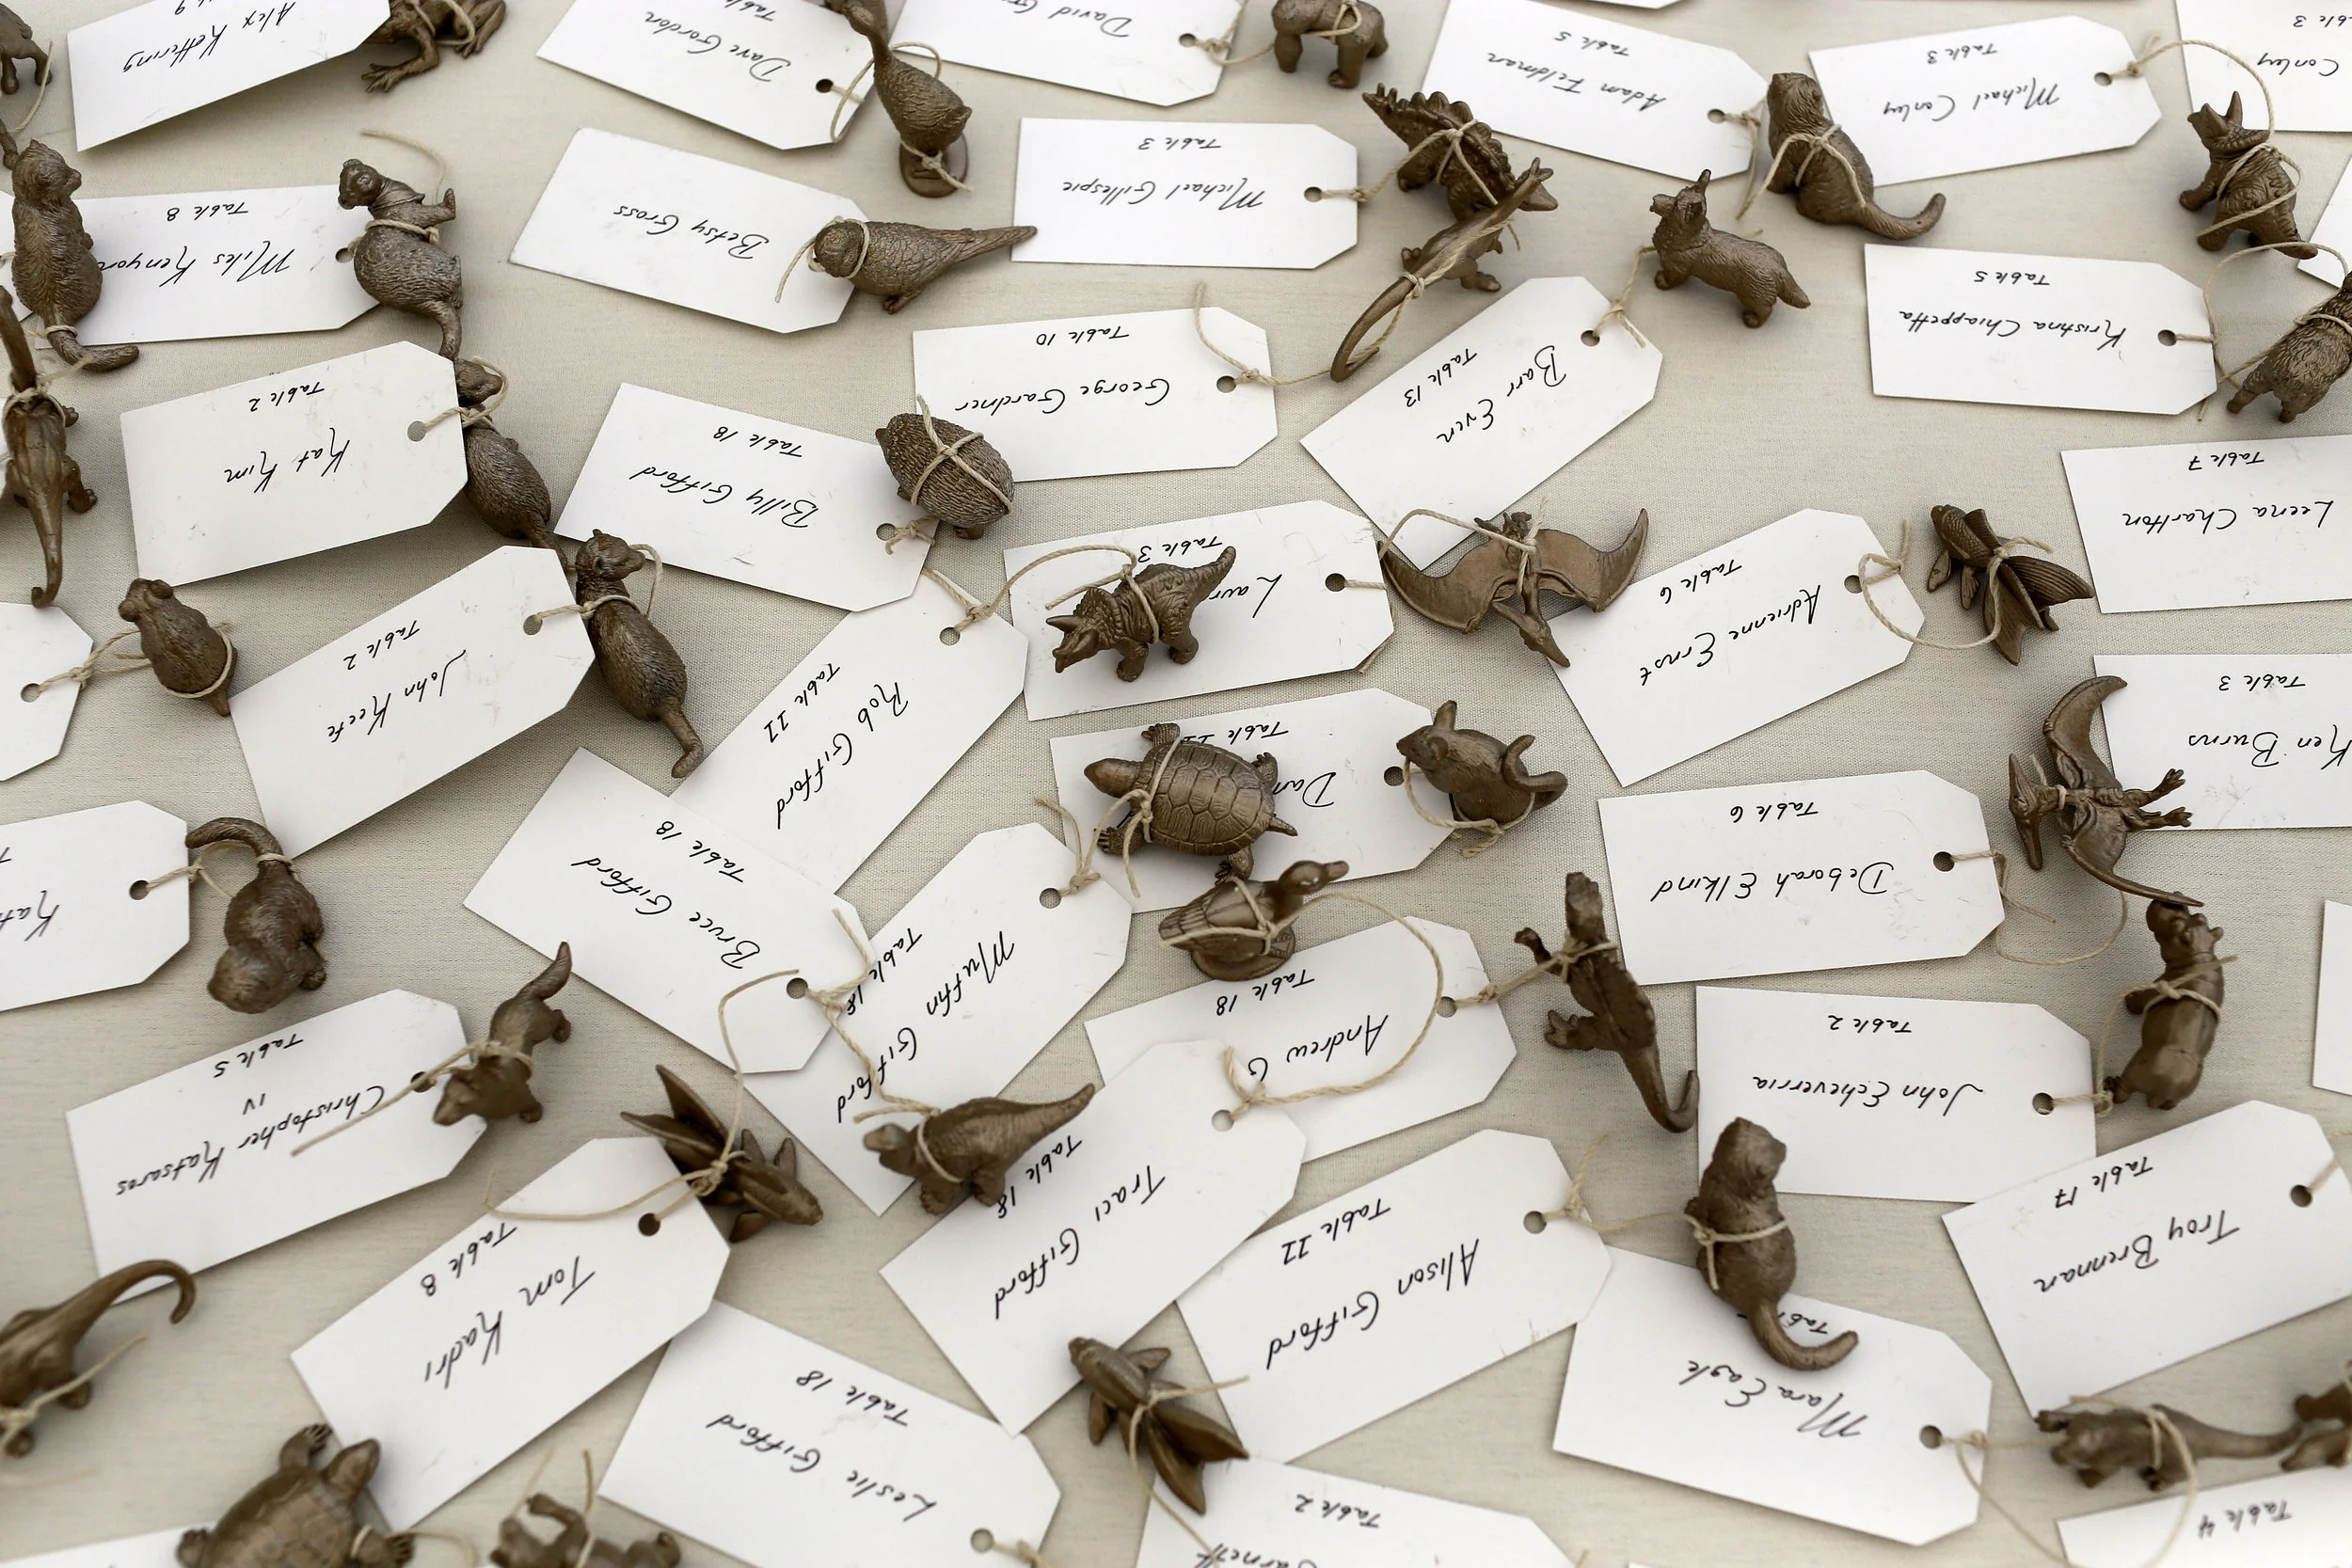 Alex Kettering
Dave Gordon
David
Adam Feldman
Table 5
Michael Conley
Table 3
Conley
Miles Kenyon
Table 8
Betsy Gross
Michael Gillespie
Table 3
Kristina Chiappetta
Table 5
Kat Kim
Table 2
Billy Gifford
Table 18
George Gardner
Table 10
Barr Even
Table 13
Leena Charlton
Table 7
John Keefe
Table 2
Rob Gifford
Table 22
Table 3
Adrienne Ernst
Table 6
Ken Burns
Table 3
Bruce Gifford
Table 18
Muffin Gifford
Table 18
Table 22
Deborah Elkind
Table 6
Andrew G
Table 18
John Echeverria
Table 2
Christopher Katsaros
IV
Table 5
Tom Kadri
Table 8
Traci Gifford
Table 18
Alison Gifford
Table 22
Troy Brennan
Table 17
Mara Eagle
Leslie Gifford
Table 18
Table 2
Table 4